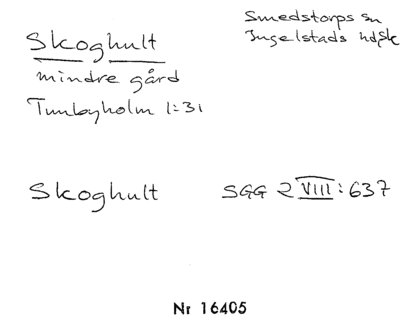 Skoghult
Smedstorps sn
Ingelstads hd, Sk
mindre gård
Tunbyholm 1:31
Skoghult
SGG 2 VIII: 637
Nr 16405